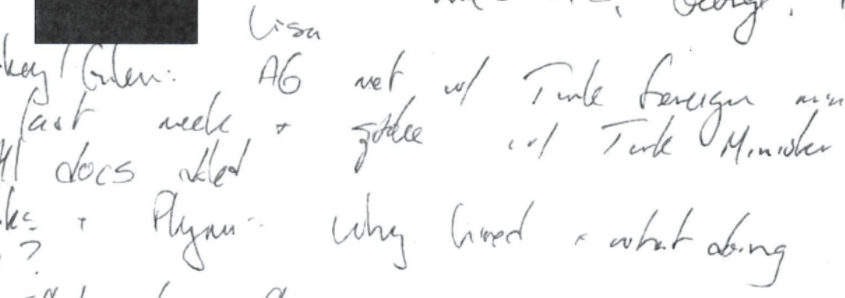 George.
Lisa
key/Gulen: AG met w/ Turk foreign min
last week + spoke w/ Turk Minister
All docs
+ Flynn - Why hired + what doing
?